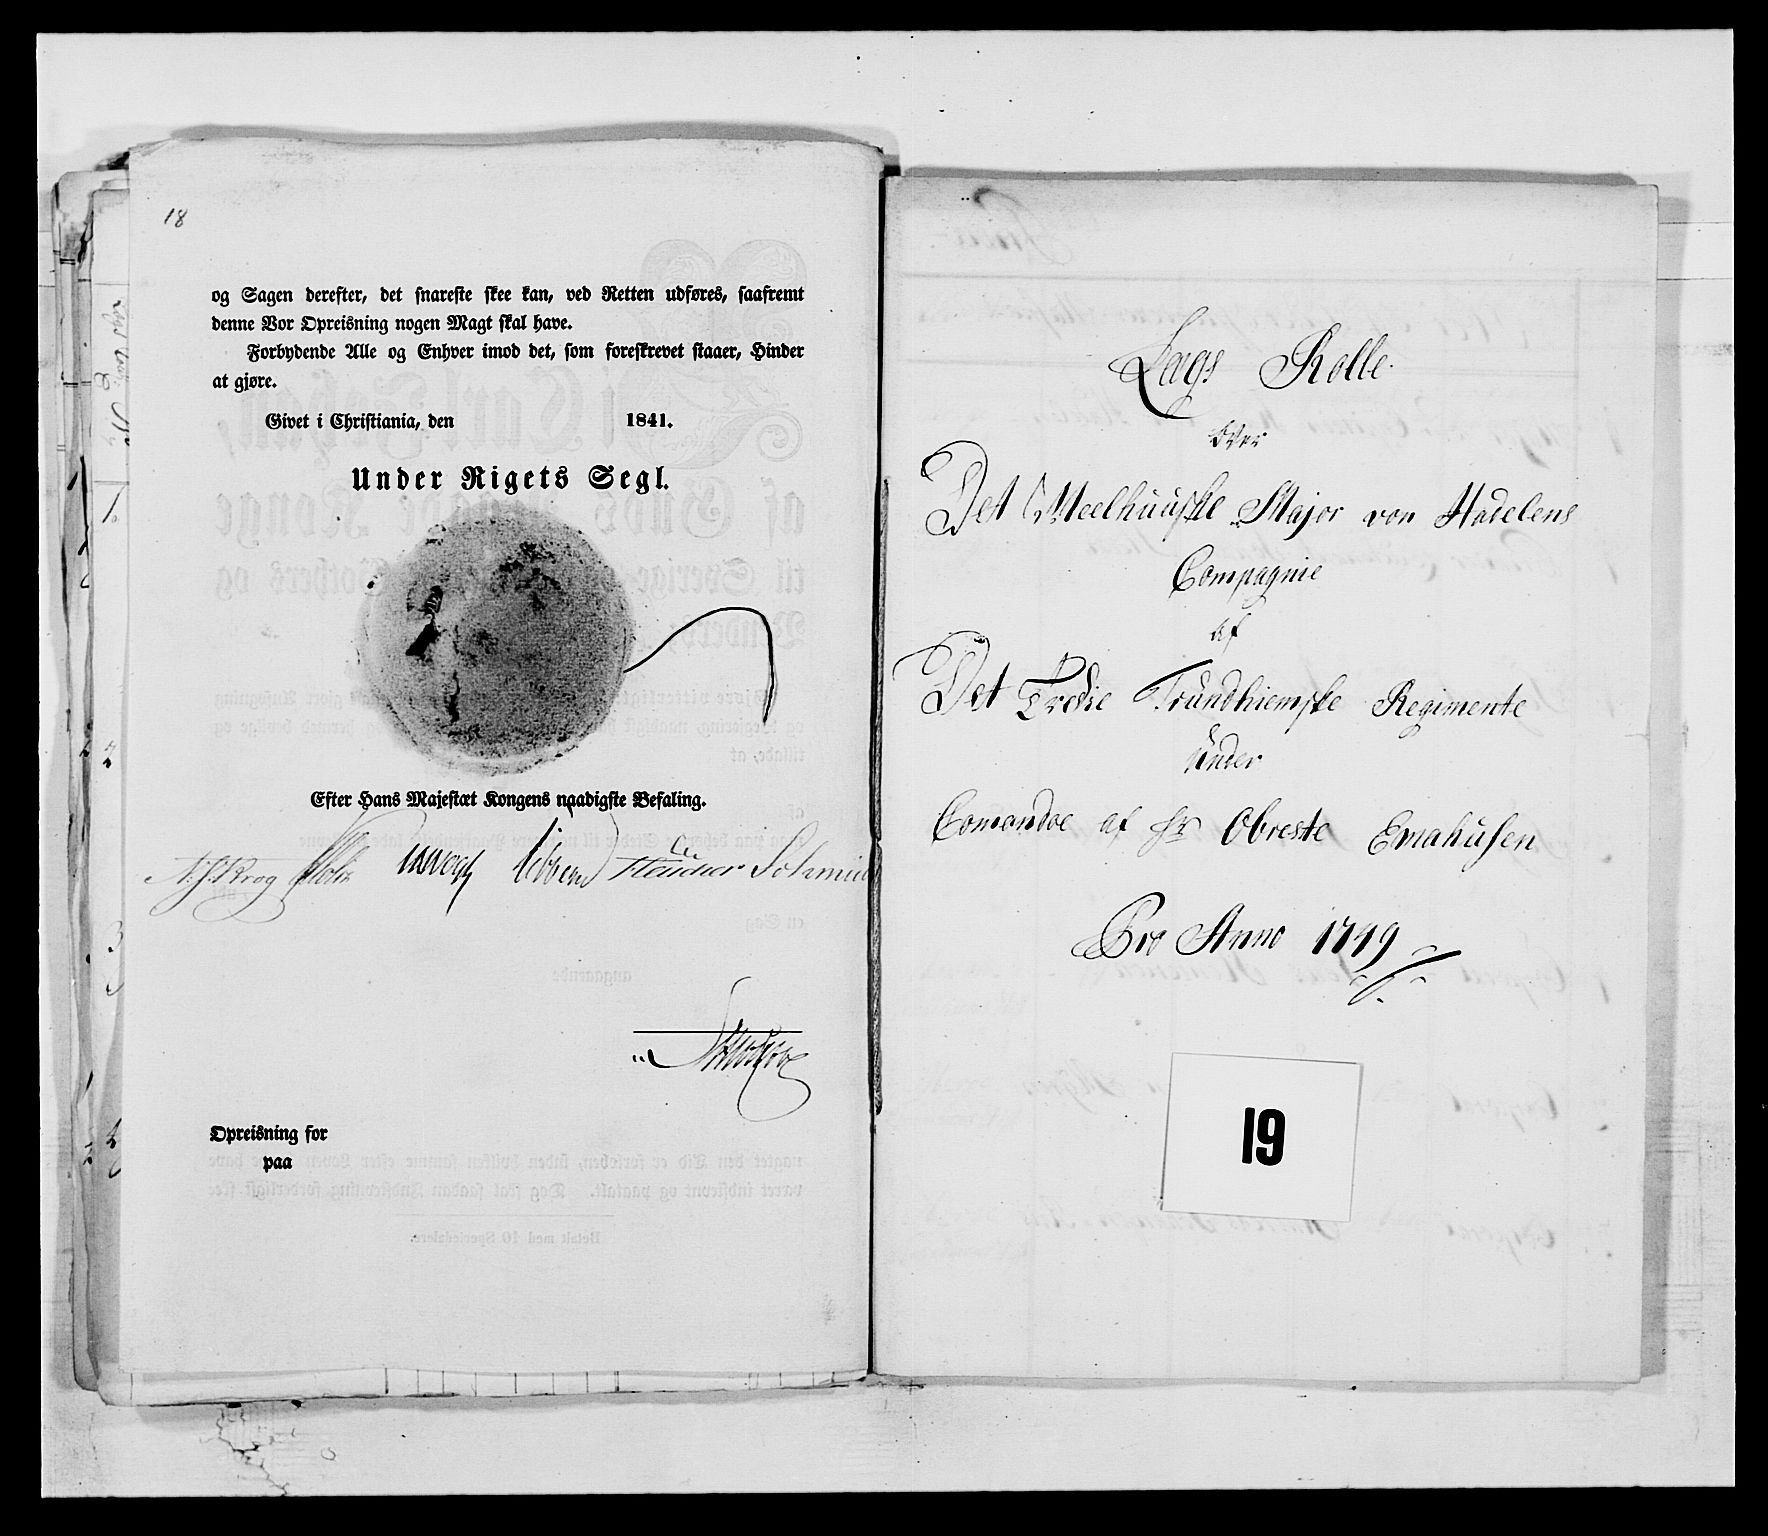 18
og Sagen derefter, det snareste skee kan, ved Retten udføres, saafremt
denne Vor Opreisning nogen Magt skal have.
Forbydende Alle og Enhver imod det, som foreskrevet staaer, Hinder
at gjøre.
Givet i Christiania, den 1841.
Under Rigets Segl.
Efter Hans Majestæt Kongens naadigste Befaling.
Krog Holst Vogt Schmidt
Opreisning for
paa
Laugs Rolle
over
Det Meelhuuske Major von Hadelens
Compagnie
af
Det Tredie Trundhiemske Regimente
Under
Comandoe af Hr Obreste Emahusen
Pro Anno 1749
19